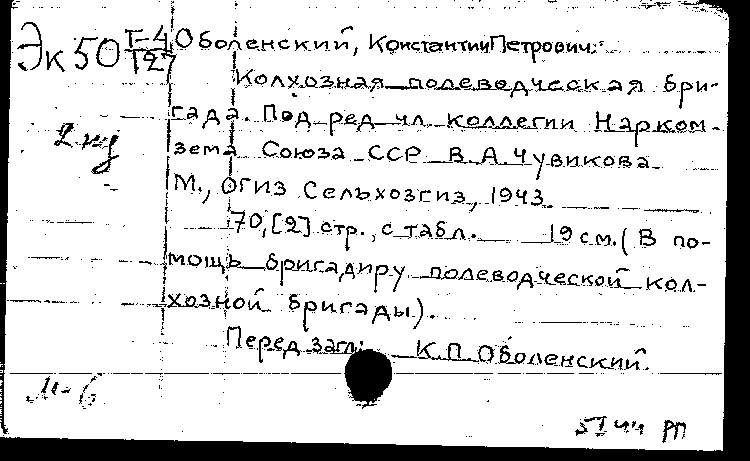 Эк 50 Т-4
127
Оболенский, Константин Петрович.
Колхозная полеводческая бри-
гада. Под ред чл. коллегии Нарком-
зема Союза ССР В.А. Чувикова.
М., ОГИЗ Сельхозгиз, 1943.
70, [2] стр., с табл. 19 см. (В по-
мощь бригадиру полеводческой кол-
хозной бригады).
Перед загл.: К.П. Оболенский.
М-6
РП